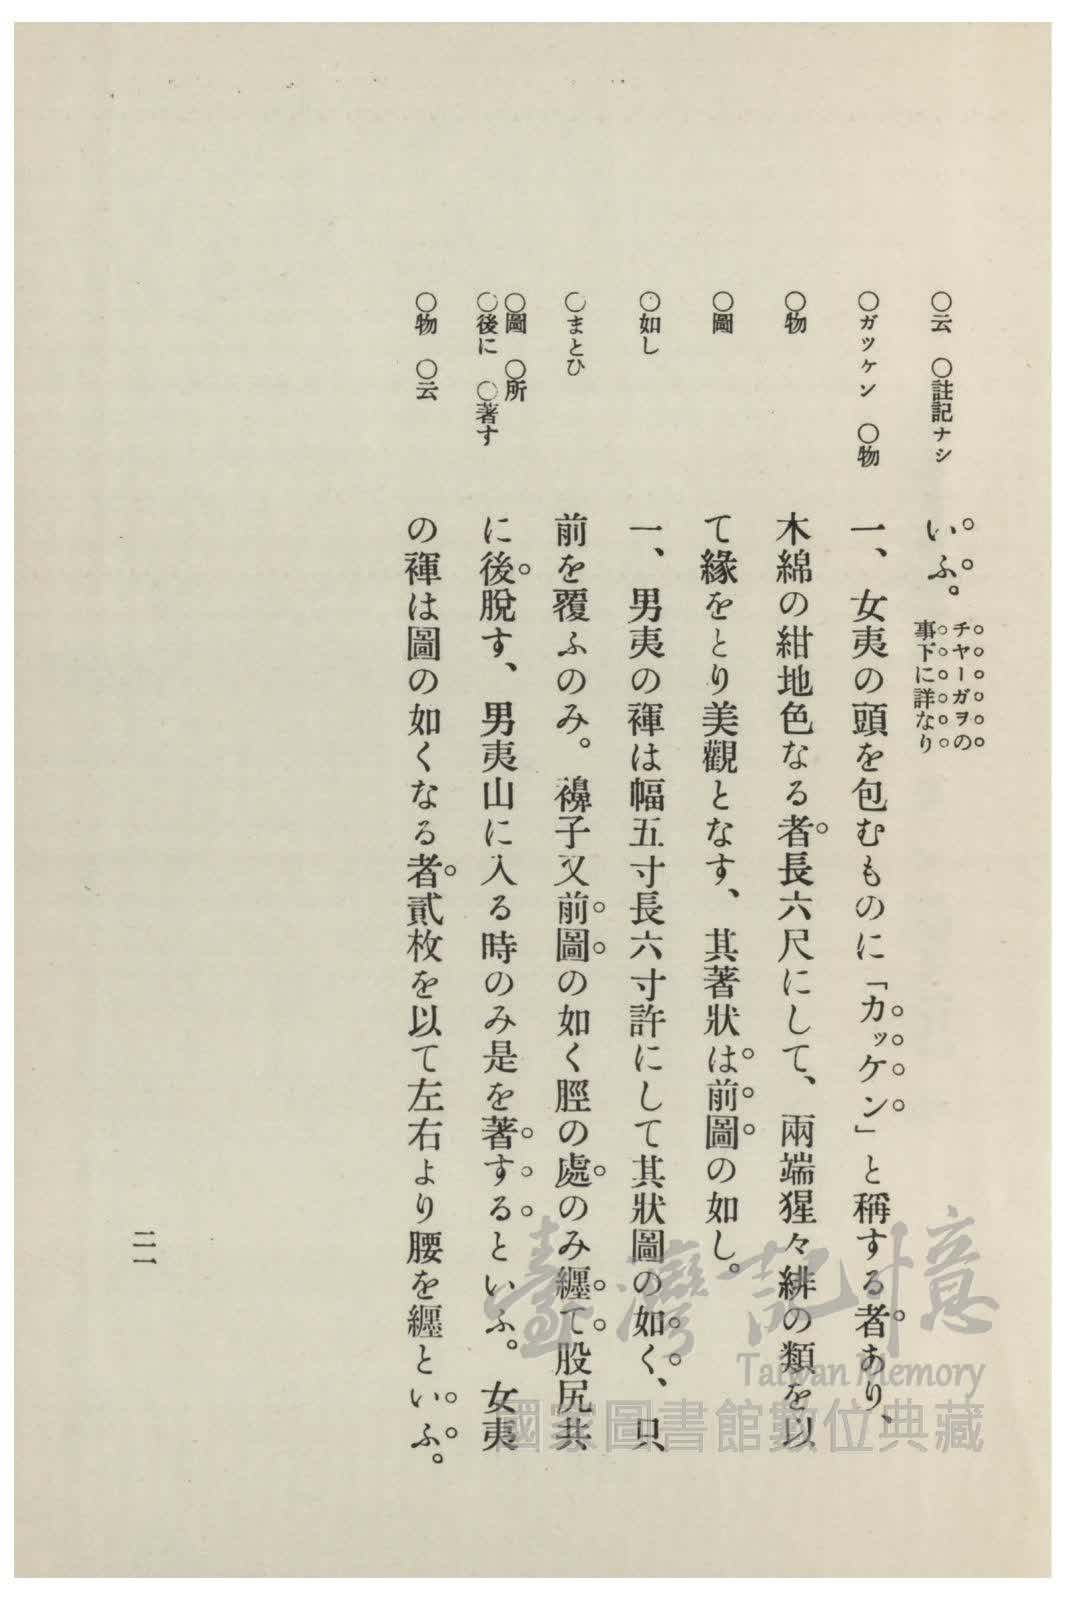 ○云　○註記ナシ
いふ。チヤーガヲの
事下に詳なり
○ガツケン　○物
一、女夷の頭を包むものに「カッケン」と稱する者あり、
○物
木綿の紺地色なる者長六尺にして、兩端猩々緋の類を以
○圖
て緣をとり美觀となす、其著狀は前圖の如し。
○如し
一、男夷の褌は幅五寸長六寸許にして其狀圖の如く、只
○まとひ
前を覆ふのみ。襣子又前圖の如く脛の處のみ纒て股尻共
○圖　○所
○後に　○著す
に後脫す、男夷山に入る時のみ是を著するといふ。女夷
○物　○云
の褌は圖の如くなる者貳枚を以て左右より腰を纒といふ。
二一
臺灣記憶
Taiwan Memory
國家圖書館數位典藏